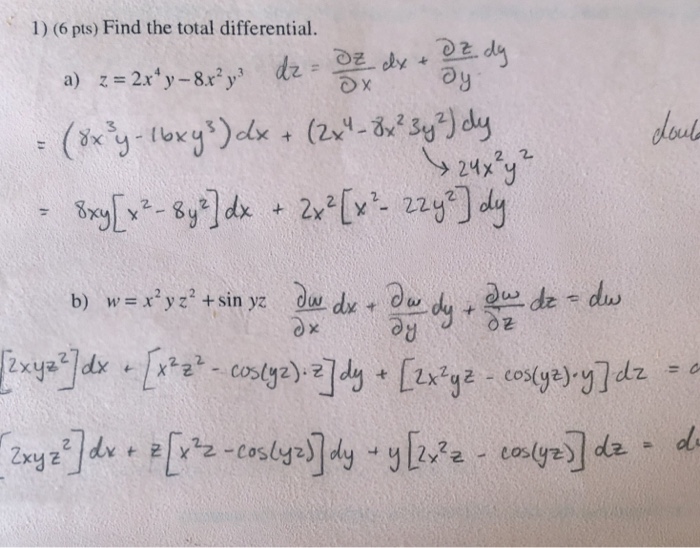 1) (6 pts) Find the total differential.
a) z = 2x⁴y − 8x²y³ dz = ∂z/∂x dx + ∂z/∂y dy
= (8x³y − 16xy³) dx + (2x⁴ − 8x² 3y²) dy
↳ 24x²y²
= 8xy[x² − 8y²] dx + 2x²[x² − 22y²] dy
b) w = x² y z² + sin yz ∂w/∂x dx + ∂w/∂y dy + ∂w/∂z dz = dw
[2xyz²] dx + [x²z² − cos(yz)·z] dy + [2x²yz − cos(yz)·y] dz =
[2xyz²] dx + z[x²z − cos(yz)] dy + y[2x²z − cos(yz)] dz =